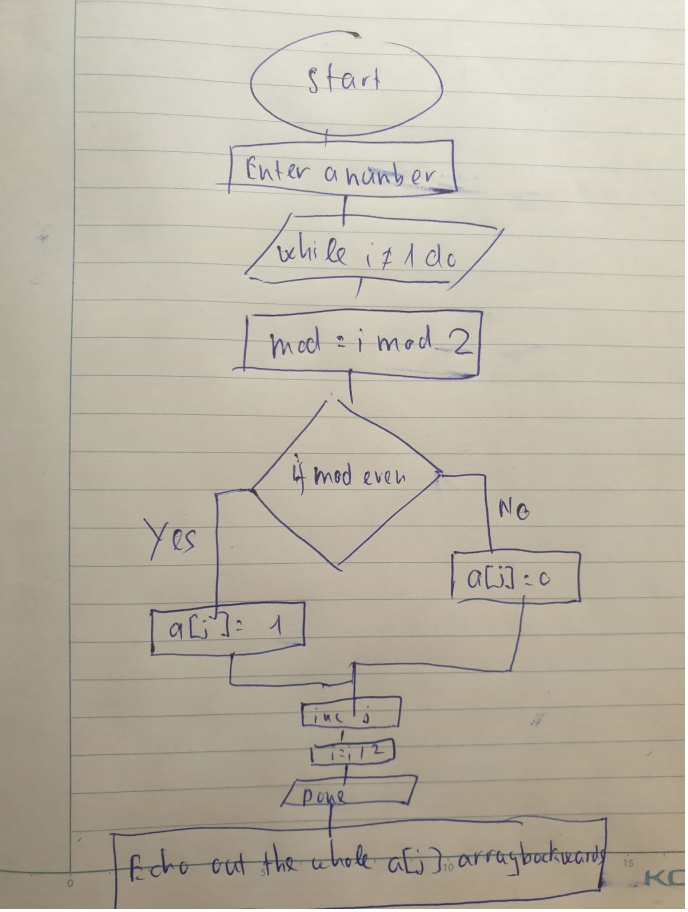 start
Enter a number
while i ≠ 1 do
mod = i mod 2
if mod even
Yes
No
a[j] = 0
a[j] = 1
inc j
i = i / 2
Done
Echo out the whole a[j] array backwards
0
5
10
15
KO